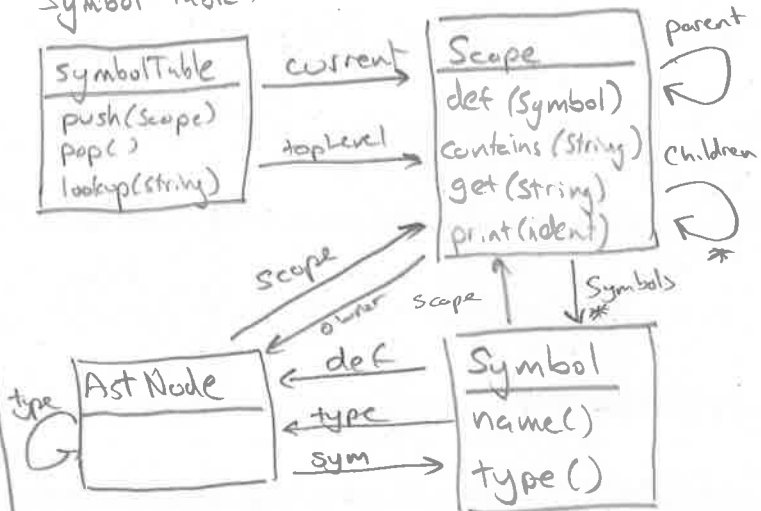 Symbol Table.
SymbolTable
push(Scope)
pop()
lookup(String)
current
topLevel
Scope
def (Symbol)
contains (String)
get (String)
print(ident)
parent
Children
*
scope
owner
scope
Symbols
*
AstNode
type
def
type
sym
Symbol
name()
type()